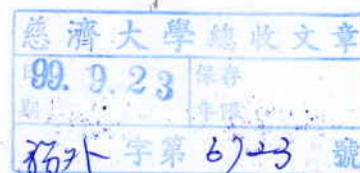 慈濟大學總收文章
日期 99. 9. 23 保存年限
字第 6723 號